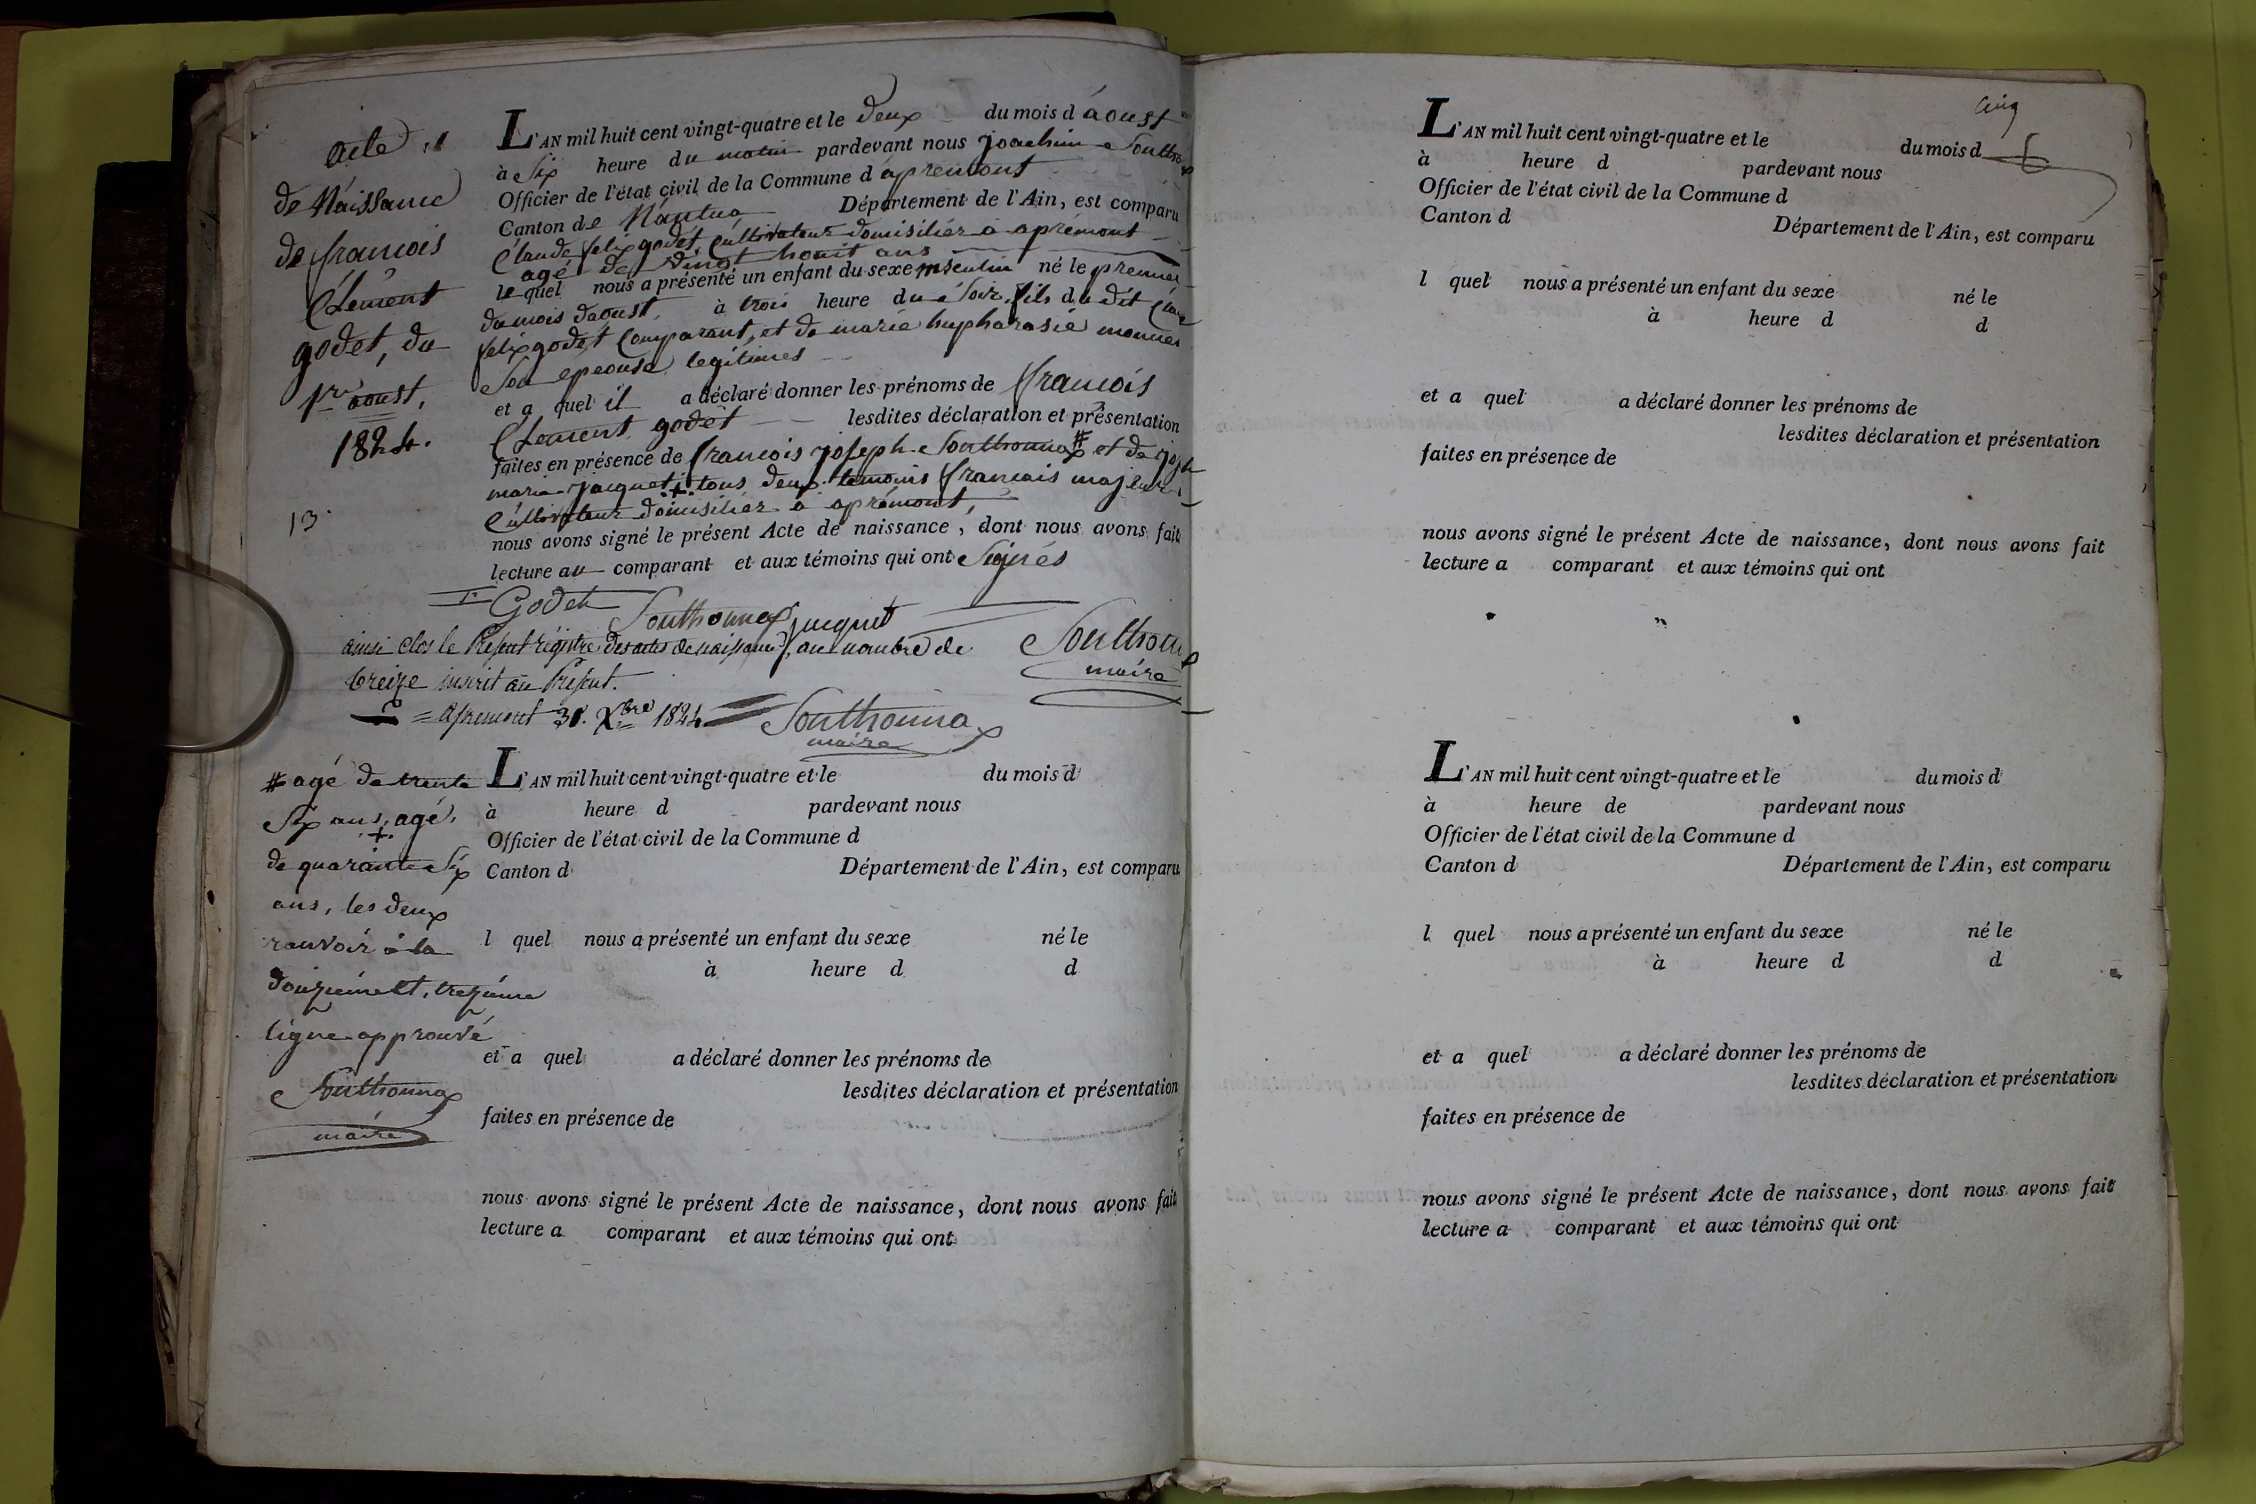 acte
de Naissance
de francois
Clement
godet, du
1er aoust,
1824.
13.
L'AN mil huit cent vingt-quatre et le deux du mois d'aoust
à Six heure du matin pardevant nous joachim Southonnax
Officier de l'état civil de la Commune d'apremont
Canton de Nantua Département de l'Ain, est comparu
Claude felix godet, Cultivateur domisilier à apremont
agé de vingt houit ans
le quel nous a présenté un enfant du sexe msculin né le premier
du mois daoust, à trois heure du Soir, fils du dit Claude
felix godet Comparant, et de marie hupharasie monnier
Son epeouse legitimes
et a quel il a déclaré donner les prénoms de francois
Clement godet lesdites déclaration et présentation
faites en présence de francois joseph Southonnax # et de joseph
marie jacquet + tous deux temoins francais majeurs
Cultivateur domisilier à apremont,
nous avons signé le présent Acte de naissance, dont nous avons fait
lecture au comparant et aux témoins qui ont Signés
Godet Southonnax jacquet
Southonnax
maire
ainsi clos le Présent régistre des actes de naissance, au nombre de
treize inscrit au Présent.
= Apremont 31. Xbre 1824 Southonnax
maire
# agé de trente
Six ans, agé,
+
de quarante Six
ans, les deux
ranvoir à la
douzieme et, trezieme
ligne approuvé
Southonnax
maire
L'AN mil huit cent vingt-quatre et le du mois d
à heure d pardevant nous
Officier de l'état civil de la Commune d
Canton d Département de l'Ain, est comparu
l quel nous a présenté un enfant du sexe né le
à heure d d
et a quel a déclaré donner les prénoms de
lesdites déclaration et présentation
faites en présence de
nous avons signé le présent Acte de naissance, dont nous avons fait
lecture a comparant et aux témoins qui ont
cinq
L'AN mil huit cent vingt-quatre et le du mois d
à heure d pardevant nous
Officier de l'état civil de la Commune d
Canton d Département de l'Ain, est comparu
l quel nous a présenté un enfant du sexe né le
à heure d d
et a quel a déclaré donner les prénoms de
lesdites déclaration et présentation
faites en présence de
nous avons signé le présent Acte de naissance, dont nous avons fait
lecture a comparant et aux témoins qui ont
L'AN mil huit cent vingt-quatre et le du mois d
à heure de pardevant nous
Officier de l'état civil de la Commune d
Canton d Département de l'Ain, est comparu
l quel nous a présenté un enfant du sexe né le
à heure d d
et a quel a déclaré donner les prénoms de
lesdites déclaration et présentation
faites en présence de
nous avons signé le présent Acte de naissance, dont nous avons fait
lecture a comparant et aux témoins qui ont